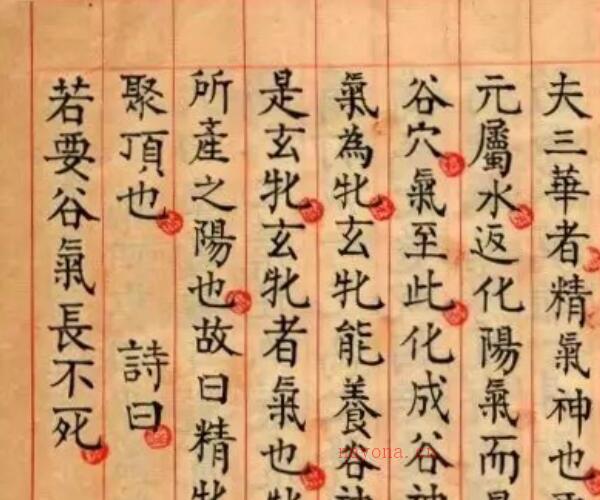 夫三華者精氣神也
元屬水返化陽氣而
谷穴氣至此化成谷
氣為牝玄牝能養谷
是玄牝玄牝者氣也
所產之陽也故曰精
聚頂也 詩曰
若要谷氣長不死